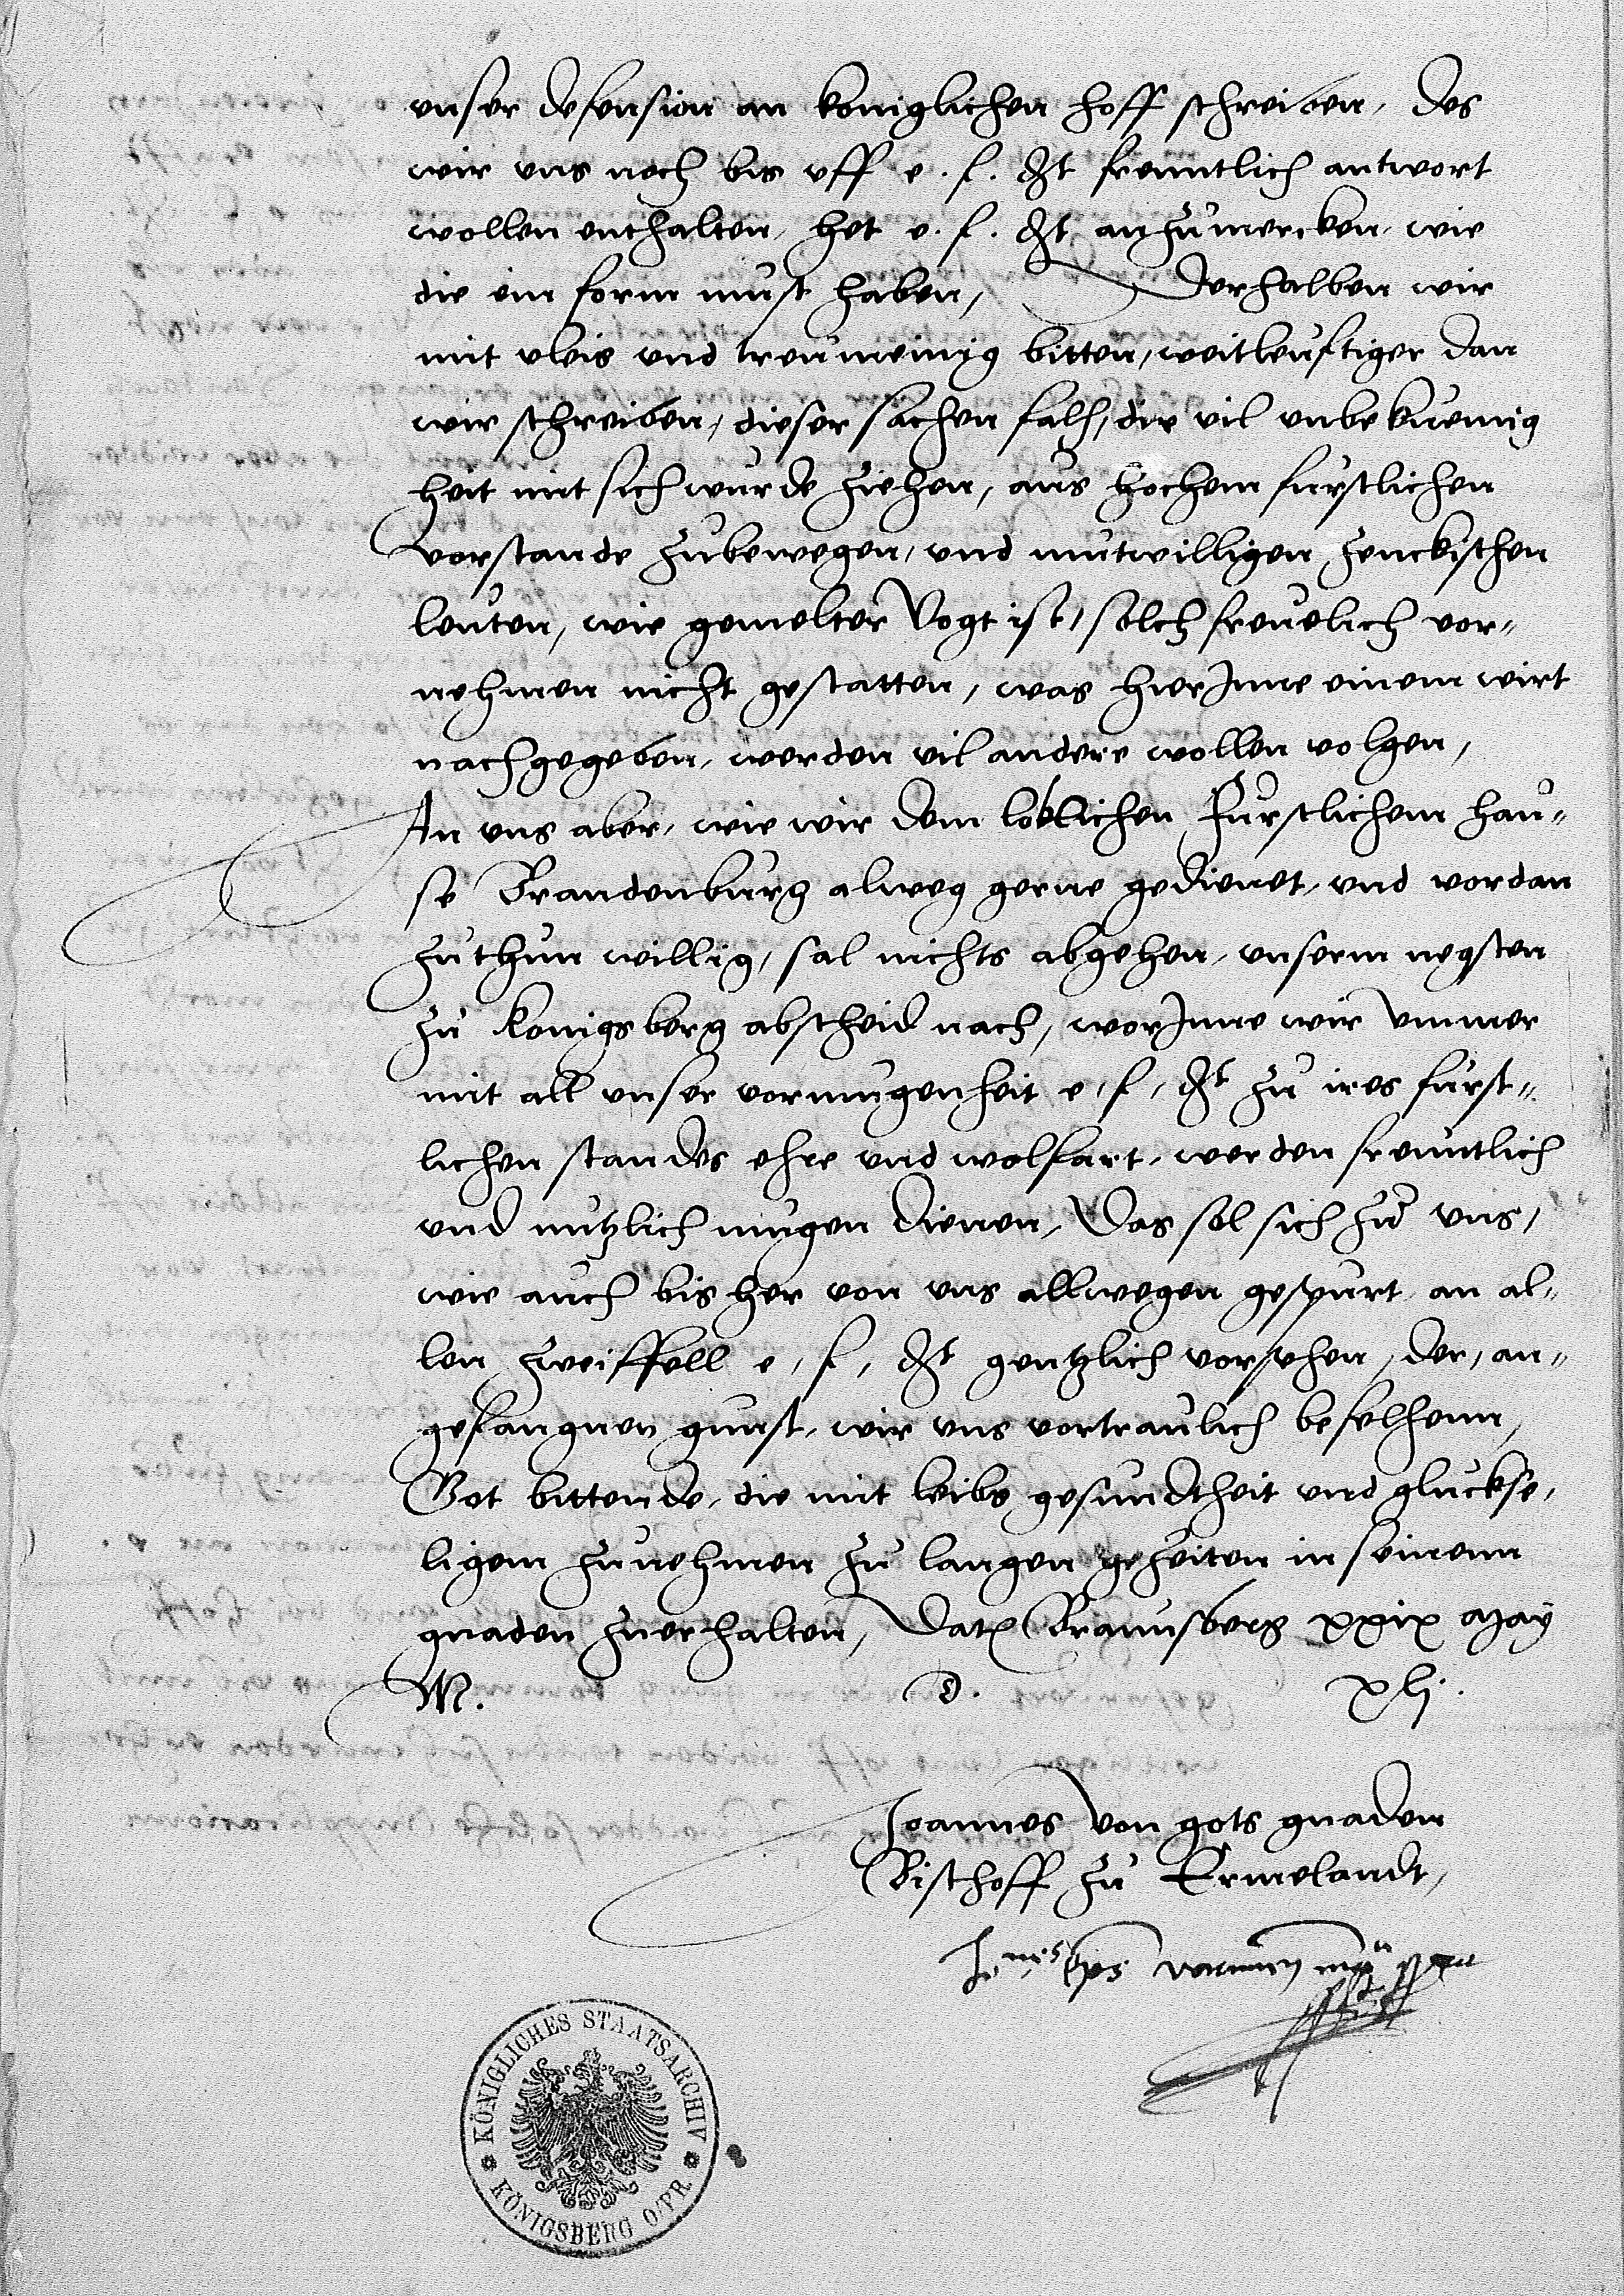 unser defension an koniglichen hoff schreiben, des
wir uns noch bis uff e. f. dt freuntlich antwort
wollen enthalten, het e. f. dt anzumercken, wie
die ein form must haben, Derhalben wir
mit vleis und treumeinig bitten, weitleuftiger dan
wir schreiben, dieser sachen falh, die vil unbequemig
heit mit sich wurde ziehen, aus hochem furstlichen
vorstande zubewegen, und mutwilligen zenckischen
leuten, wie gemelter Vogt ist, solch freuelich vor„
nehmen nicht gestatten, was hierInne einem wirt
nachgegeben, werden vil andere wollen volgen,
An uns aber, wie wir dem loblichen Furstlichem hau„
se Brandenburg alweg gerne gedienet, und vordan
zuthun willig, sal nichts abgehen, unserm negsten
zu Konigsberg abscheid nach, worInne wir ummer
mit all unser vormugenheit e, f, dt zu ires furst„
lichen standes ehre und wolfart, werden freuntlich
und nutzlich mugen dienen, Das sol sich zu uns,
wie auch bis her von uns allwegen gespurt, an al„
len zweiffell e, f, dt gentzlich vorsehen, der, an„
gefangnen gunst, wir uns vortraulich befelhenn,
Got bittende, die mit leibs gesundtheit und gluckse,
ligem zunehmen zu langen gezeiten in seinenn
gnaden zuerhalten, Datx Braunsberg xxix May
M. D. xlj.
Joannes von gots gnaden
Bischoff zu Ermelandt,
Jo eps warmien
KÖNIGLICHES STAATSARCHIV
KÖNIGSBERG O/PR.